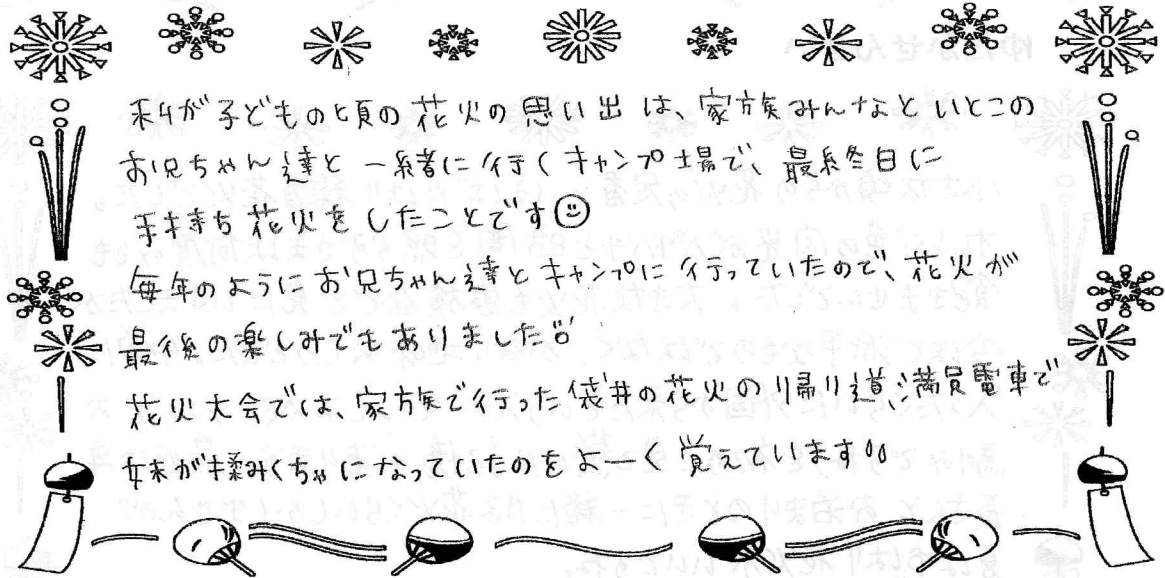 私が子どもの頃の花火の思い出は、家族みんなといとこの
お兄ちゃん達と一緒に行くキャンプ場で、最終日に
手持ち花火をしたことです
毎年のようにお兄ちゃん達とキャンプに行っていたので、花火が
最後の楽しみでもありました
花火大会では、家族で行った袋井の花火の帰り道、満員電車で
妹が揉みくちゃになっていたのをよーく覚えています